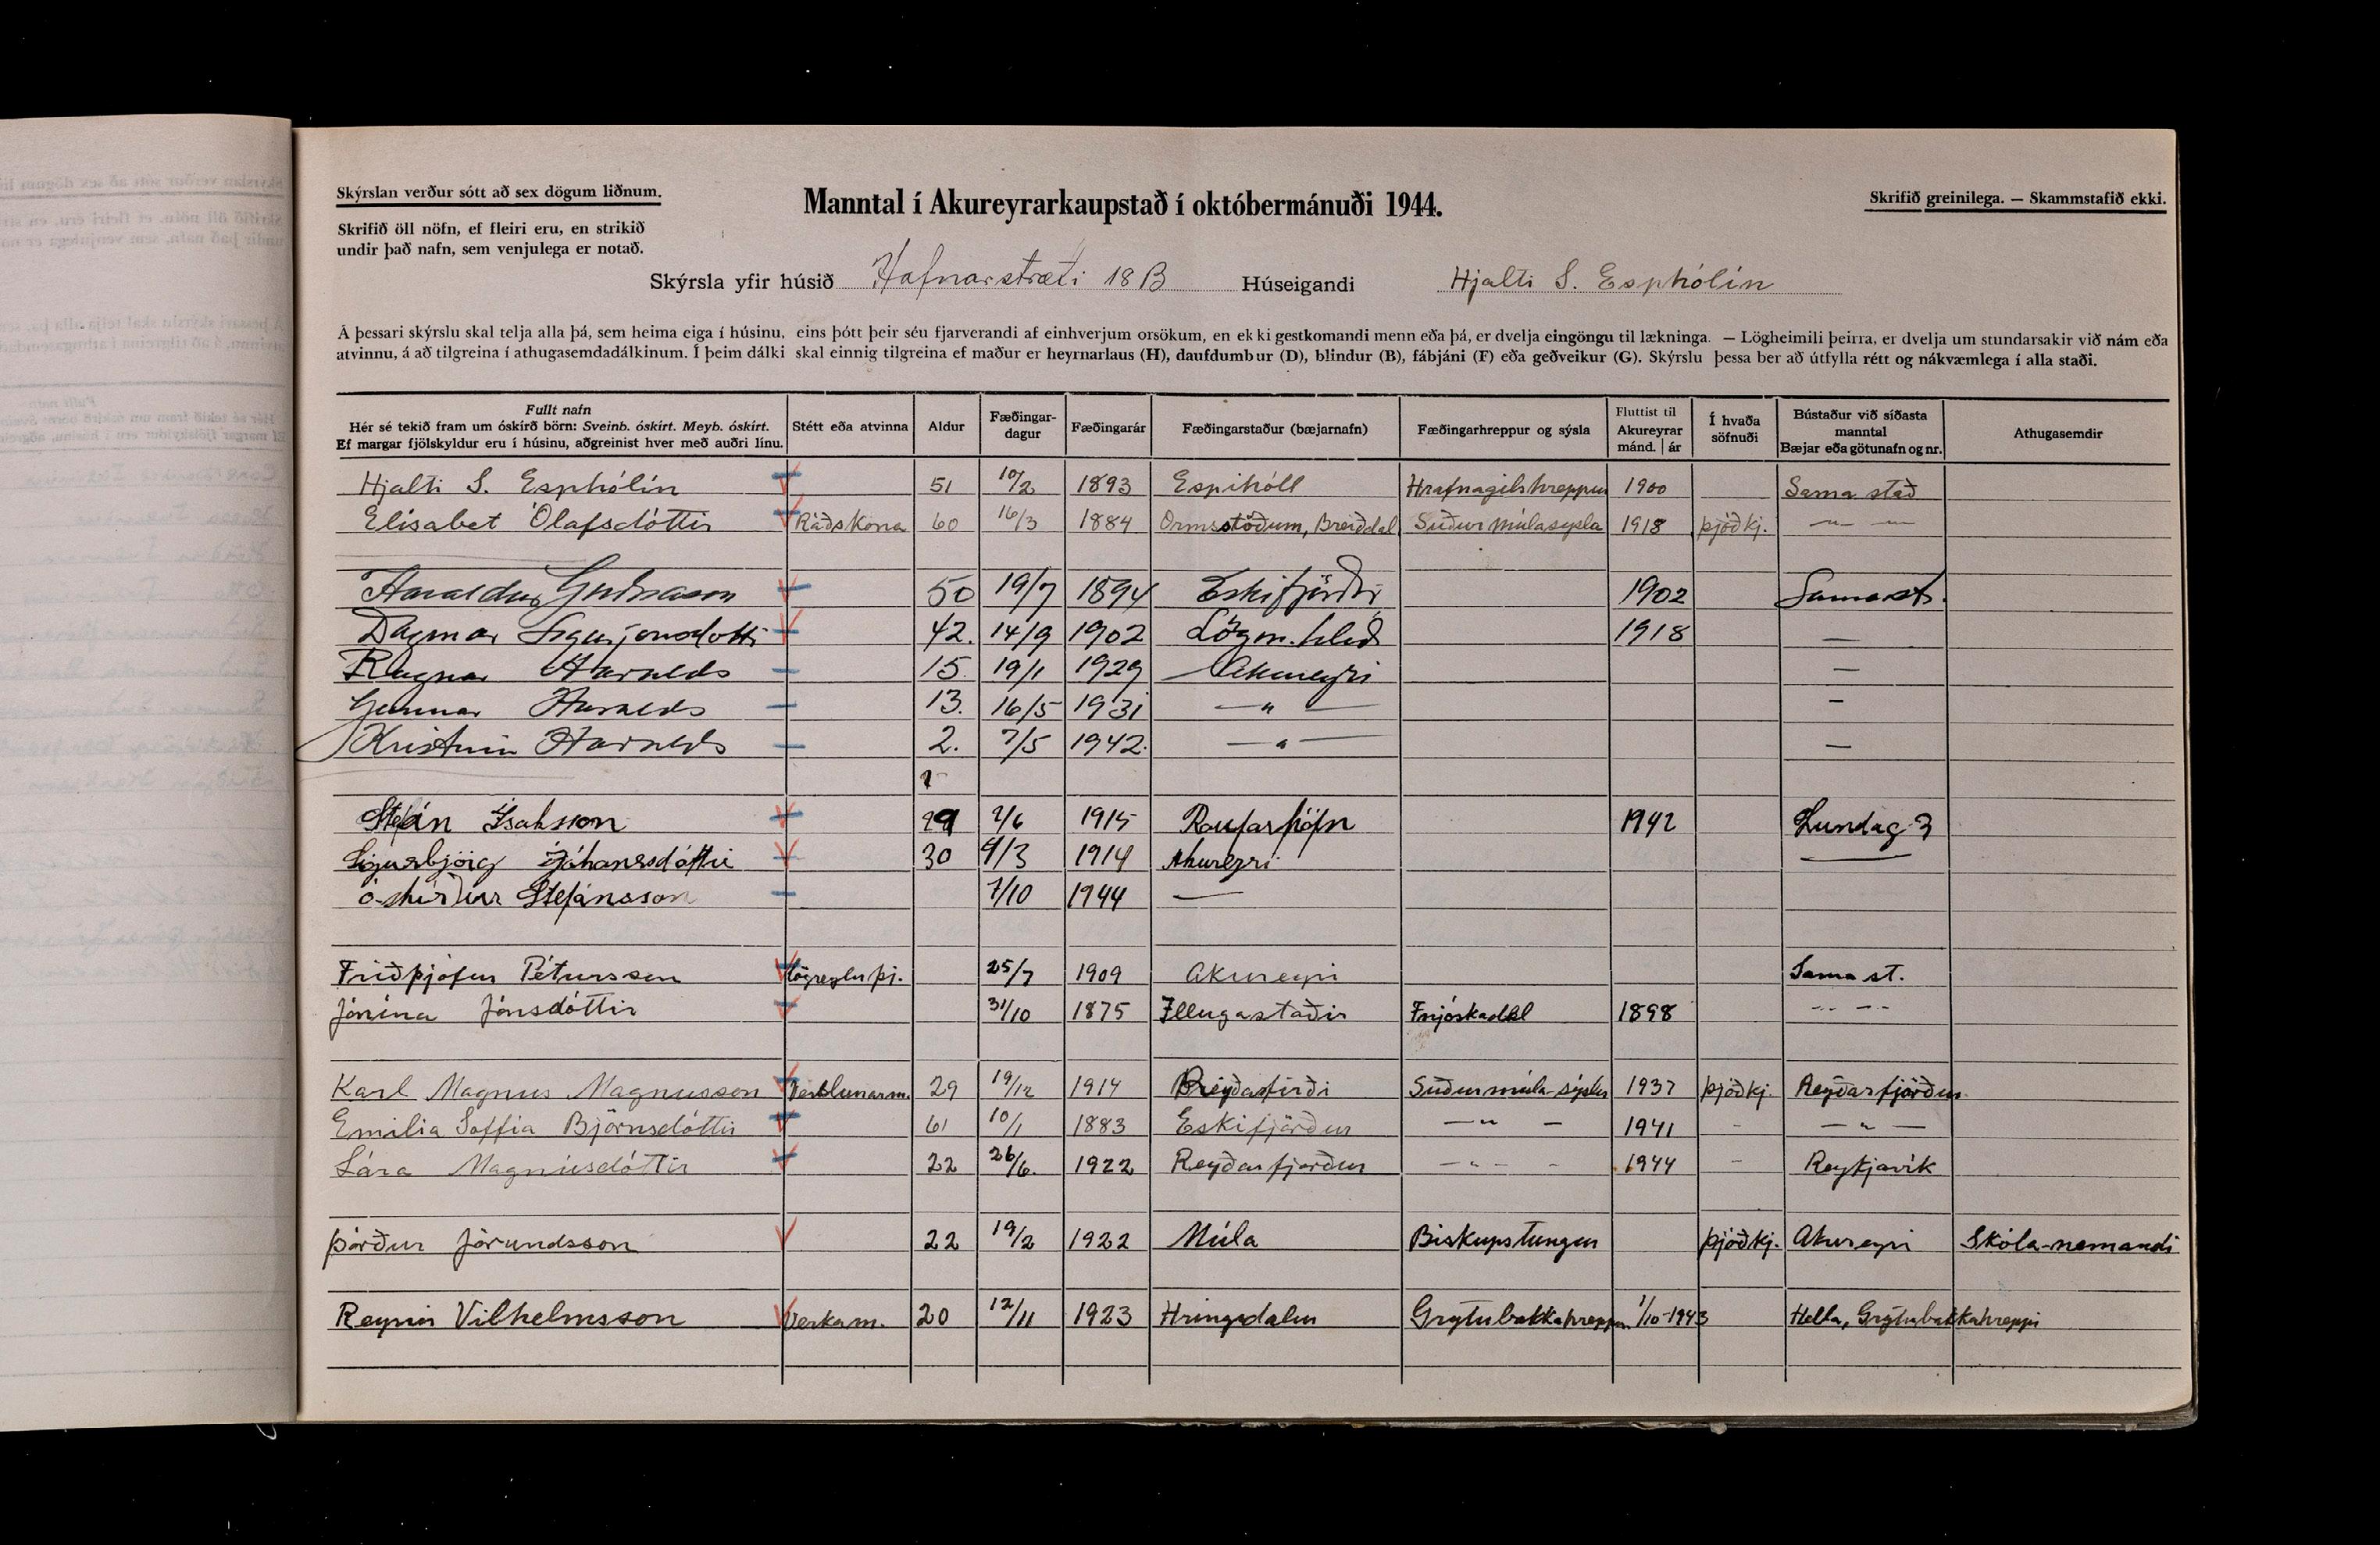 Skýrslan verður sótt að sex dögum liðnum.
Manntal í Akureyrarkaupstað í októbermánuði 1944.
Skrifið greinilega. — Skammstafið ekki.
Skrifið öll nöfn, ef fleiri eru, en strikið
undir það nafn, sem venjulega er notað.
Skýrsla yfir húsið Hafnarstræti 18 B Húseigandi Hjalti S. Esphólín
Á þessari skýrslu skal telja alla þá, sem heima eiga í húsinu, eins þótt þeir séu fjarverandi af einhverjum orsökum, en ekki gestkomandi menn eða þá, er dvelja eingöngu til lækninga. — Lögheimili þeirra, er dvelja um stundarsakir við nám eða
atvinnu, á að tilgreina í athugasemdadálkinum. Í þeim dálki skal einnig tilgreina ef maður er heyrnarlaus (H), daufdumbur (D), blindur (B), fábjáni (F) eða geðveikur (G). Skýrslu þessa ber að útfylla rétt og nákvæmlega í alla staði.
Fullt nafn
Hér sé tekið fram um óskírð börn: Sveinb. óskírt. Meyb. óskírt.
Ef margar fjölskyldur eru í húsinu, aðgreinist hver með auðri línu.
Stétt eða atvinna
Aldur
Fæðingar-
dagur
Fæðingarár
Fæðingarstaður (bæjarnafn)
Fæðingarhreppur og sýsla
Fluttist til
Akureyrar
mánd. | ár
Í hvaða
söfnuði
Bústaður við síðasta
manntal
Bæjar eða götunafn og nr.
Athugasemdir
Hjalti S. Esphólín 51 10/2 1893 Espihóll Hrafnagilshreppur 1900 Sama stað
Elísabet Ólafsdóttir Ráðskona 60 16/3 1884 Ormsstöðum, Breiðdal Suðurmúlasysla 1918 þjóðkj. —〃— —
Haraldur 50 19/7 1894 Eskifjörður 1902 Sama st.
Dagmar Sigurjónsdottir 42. 14/9 1902 Lögm.hlíð 1918 —
Ragnar Haralds 15. 19/1 1929 Akureyri —
Gunnar Haralds 13. 16/5 1931 —〃— —
Kristinn Haralds 2. 7/5 1942. —〃— —
Stefán Ísaksson 29 2/6 1915 Raufarhöfn 1942 Lundag. 3
Sigurbjörg Jóhannsdóttir 30 4/3 1914 Akureyri
óskírður Stefánsson 7/10 1944 —
Friðþjófur Pétursson Lögregluþj. 25/7 1909 Akureyri Sama st.
Jónína Jónsdóttir 31/10 1875 Illugastaðir Fnjóskadal 1898 -- --
Karl Magnus Magnusson Verslunarm. 29 19/12 1914 Reyðarfirði Suðurmúla-sýslu 1937 þjóðkj. Reyðarfjörður
Emilia Soffia Björnsdóttir 61 10/1 1883 Eskifjörður —〃— 1941 - —〃—
Lára Magnúsdóttir 22 26/6 1922 Reyðarfjörður -〃- - 1944 - Reykjavík
Þórður Jörundsson 22 19/2 1922 Múla Biskupstungur þjóðkj. Akureyri Skóla-nemandi
Reynir Vilhelmsson Verkam. 20 12/11 1923 Hringsdalur Grýtubakkahreppur 1/10-1943 Hella, Grýtubakkahreppi